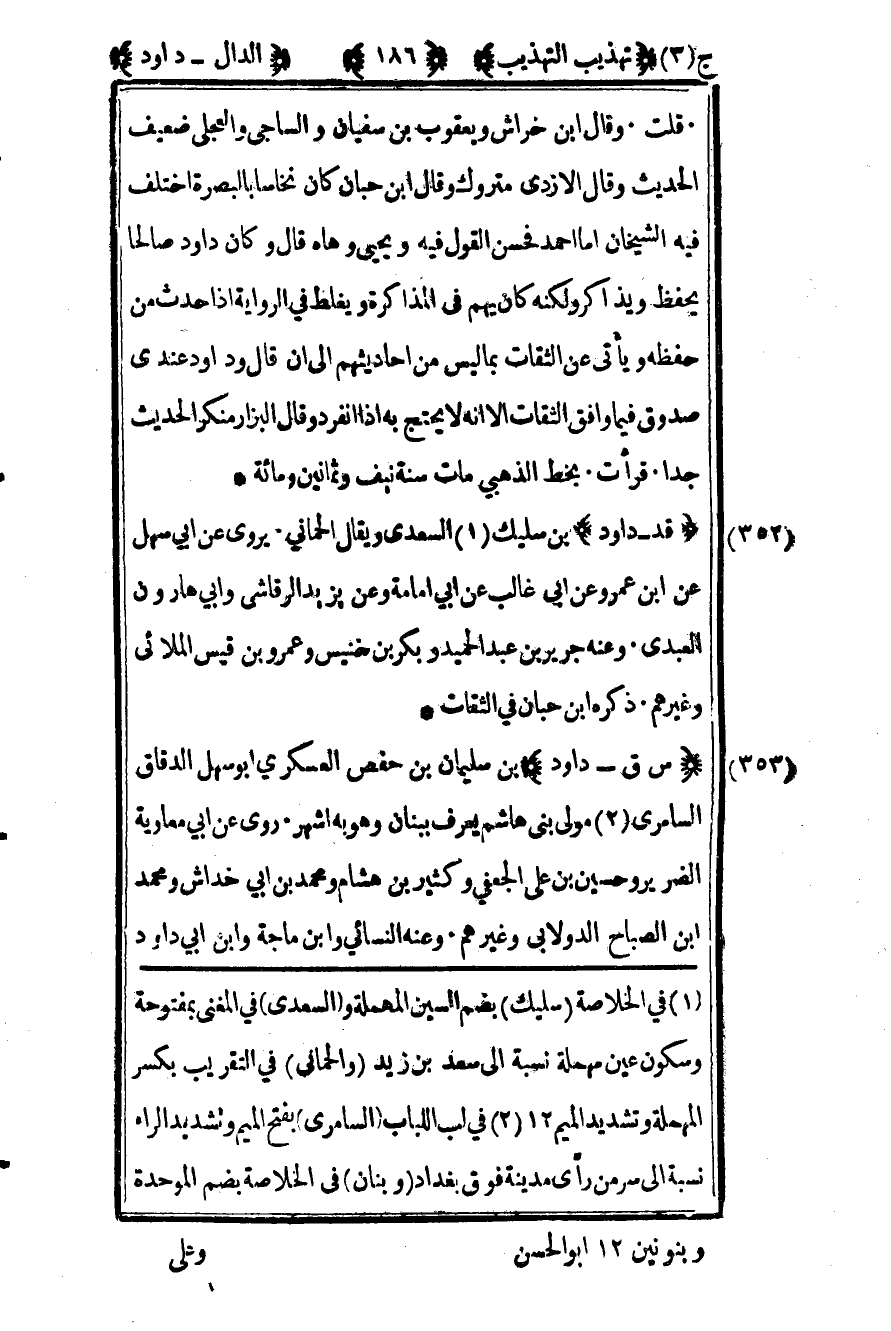 ج(٣) ﴿تهذيب التهذيب﴾ ﴿١٨٦﴾ ﴿الدال - داود﴾
٠قلت٠ وقال ابن خراش ويعقوب بن سفيان و الساجى والعجلى ضعيف
الحديث وقال الازدى متروك وقال ابن حبان كان نخاسا بالبصرة اختلف
فيه الشيخان اما احمد فحسن القول فيه و يحيى وهاه قال وكان داود صالحا
يحفظ ويذاكر ولكنه كان يهم فى المذاكرة ويغلط في الرواية اذا حدث من
حفظه ويأتى عن الثقات بماليس من احاديثهم الى ان قال وداود عندى
صدوق فيما وافق الثقات الا انه لا يحتج به اذا انفرد وقال البزار منكر الحديث
جدا٠ قرأت٠ بخط الذهبي مات سنة نيف وثمانين ومائة *
(٣٥٢) ﴿قد-داود﴾ بن سليك (١) السعدى ويقال الحماني٠ يروى عن ابي سهل
عن ابن عمرو عن ابى غالب عن ابي امامة وعن يزيد الرقاشى وابي هارون
العبدى٠ وعنه جرير بن عبد الحميد وبكر بن خنيس وعمرو بن قيس الملائى
وغيرهم٠ ذكره ابن حبان في الثقات *
(٣٥٣) ﴿س ق - داود﴾ بن سليمان بن حفص العسكري ابو سهل الدقاق
السامرى (٢) مولى بنى هاشم يعرف ببنان وهو به اشهر٠ روى عن ابي معاوية
الضرير وحسين بن على الجعفي وكثير بن هشام ومحمد بن ابي خداش ومحمد
ابن الصباح الدولابى وغيرهم٠ وعنه النسائي وابن ماجة وابن ابي داود
(١) في الخلاصة (سليك) بضم السين المهملة و(السعدى) في المغنى بمفتوحة
وسكون عين مهملة نسبة الى سعد بن زيد (والحمانى) في التقريب بكسر
المهملة وتشديد الميم ١٢ (٢) في لب اللباب (السامرى) بفتح الميم وتشديد الراء
نسبة الى سر من رأى مدينة فوق بغداد (و بنان) فى الخلاصة بضم الموحدة
وبنونين ١٢ ابو الحسن وعلى